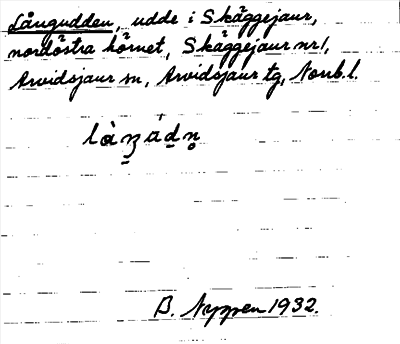 Långudden, udde i Skäggejaur,
nordöstra hörnet, Skäggejaur nr 1,
Arvidsjaur sn, Arvidsjaur tg, Norrb. l.
B. Nyppen 1932.